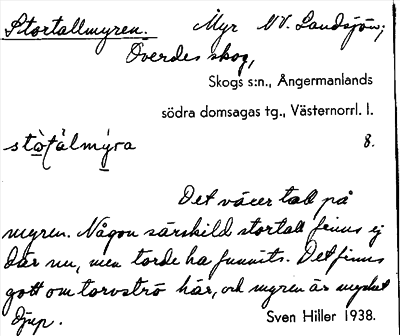 Stortallmyren. Myr NV. Landsjön;
Överdes skog,
Skogs s:n., Ångermanlands
södra domsagas tg., Västernorrl. l.
8.
Det växer tall på
myren. Någon särskild stortall finns ej
där nu, men torde ha funnits. Det finns
gott om torvströ här, och myren är mycket
djup.
Sven Hiller 1938.